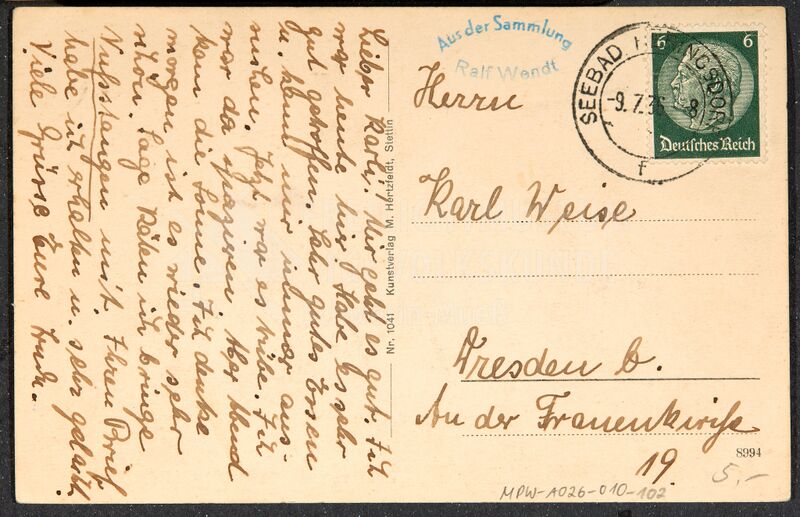 Lieber Karli! Mir geht es gut. Ich
war heute hier. Habe es sehr
gut getroffen. Sehr gutes Essen
u. kann mir immer aus-
suchen. Jetzt war es trübe. Ich
war da spazieren. Aber
kam die Sonne. Ich denke
morgen ist es wieder sehr
schön. Sage Käten ich bringe
Nußstangen mit. Ihren Brief
habe ich erhalten u. sehr gelacht.
Viele Grüsse Eure
Nr. 1041 Kunstverlag M. Hertzfeldt, Stettin
Aus der Sammlung
Ralf Wendt
SEEBAD HERINGSDORF
-9.7.36 8
f
6 6
Deutsches Reich
Herrn
Karl Weise
Dresden
An der Frauenkirche
19.
8994
5,-
MPW-A026-010-102